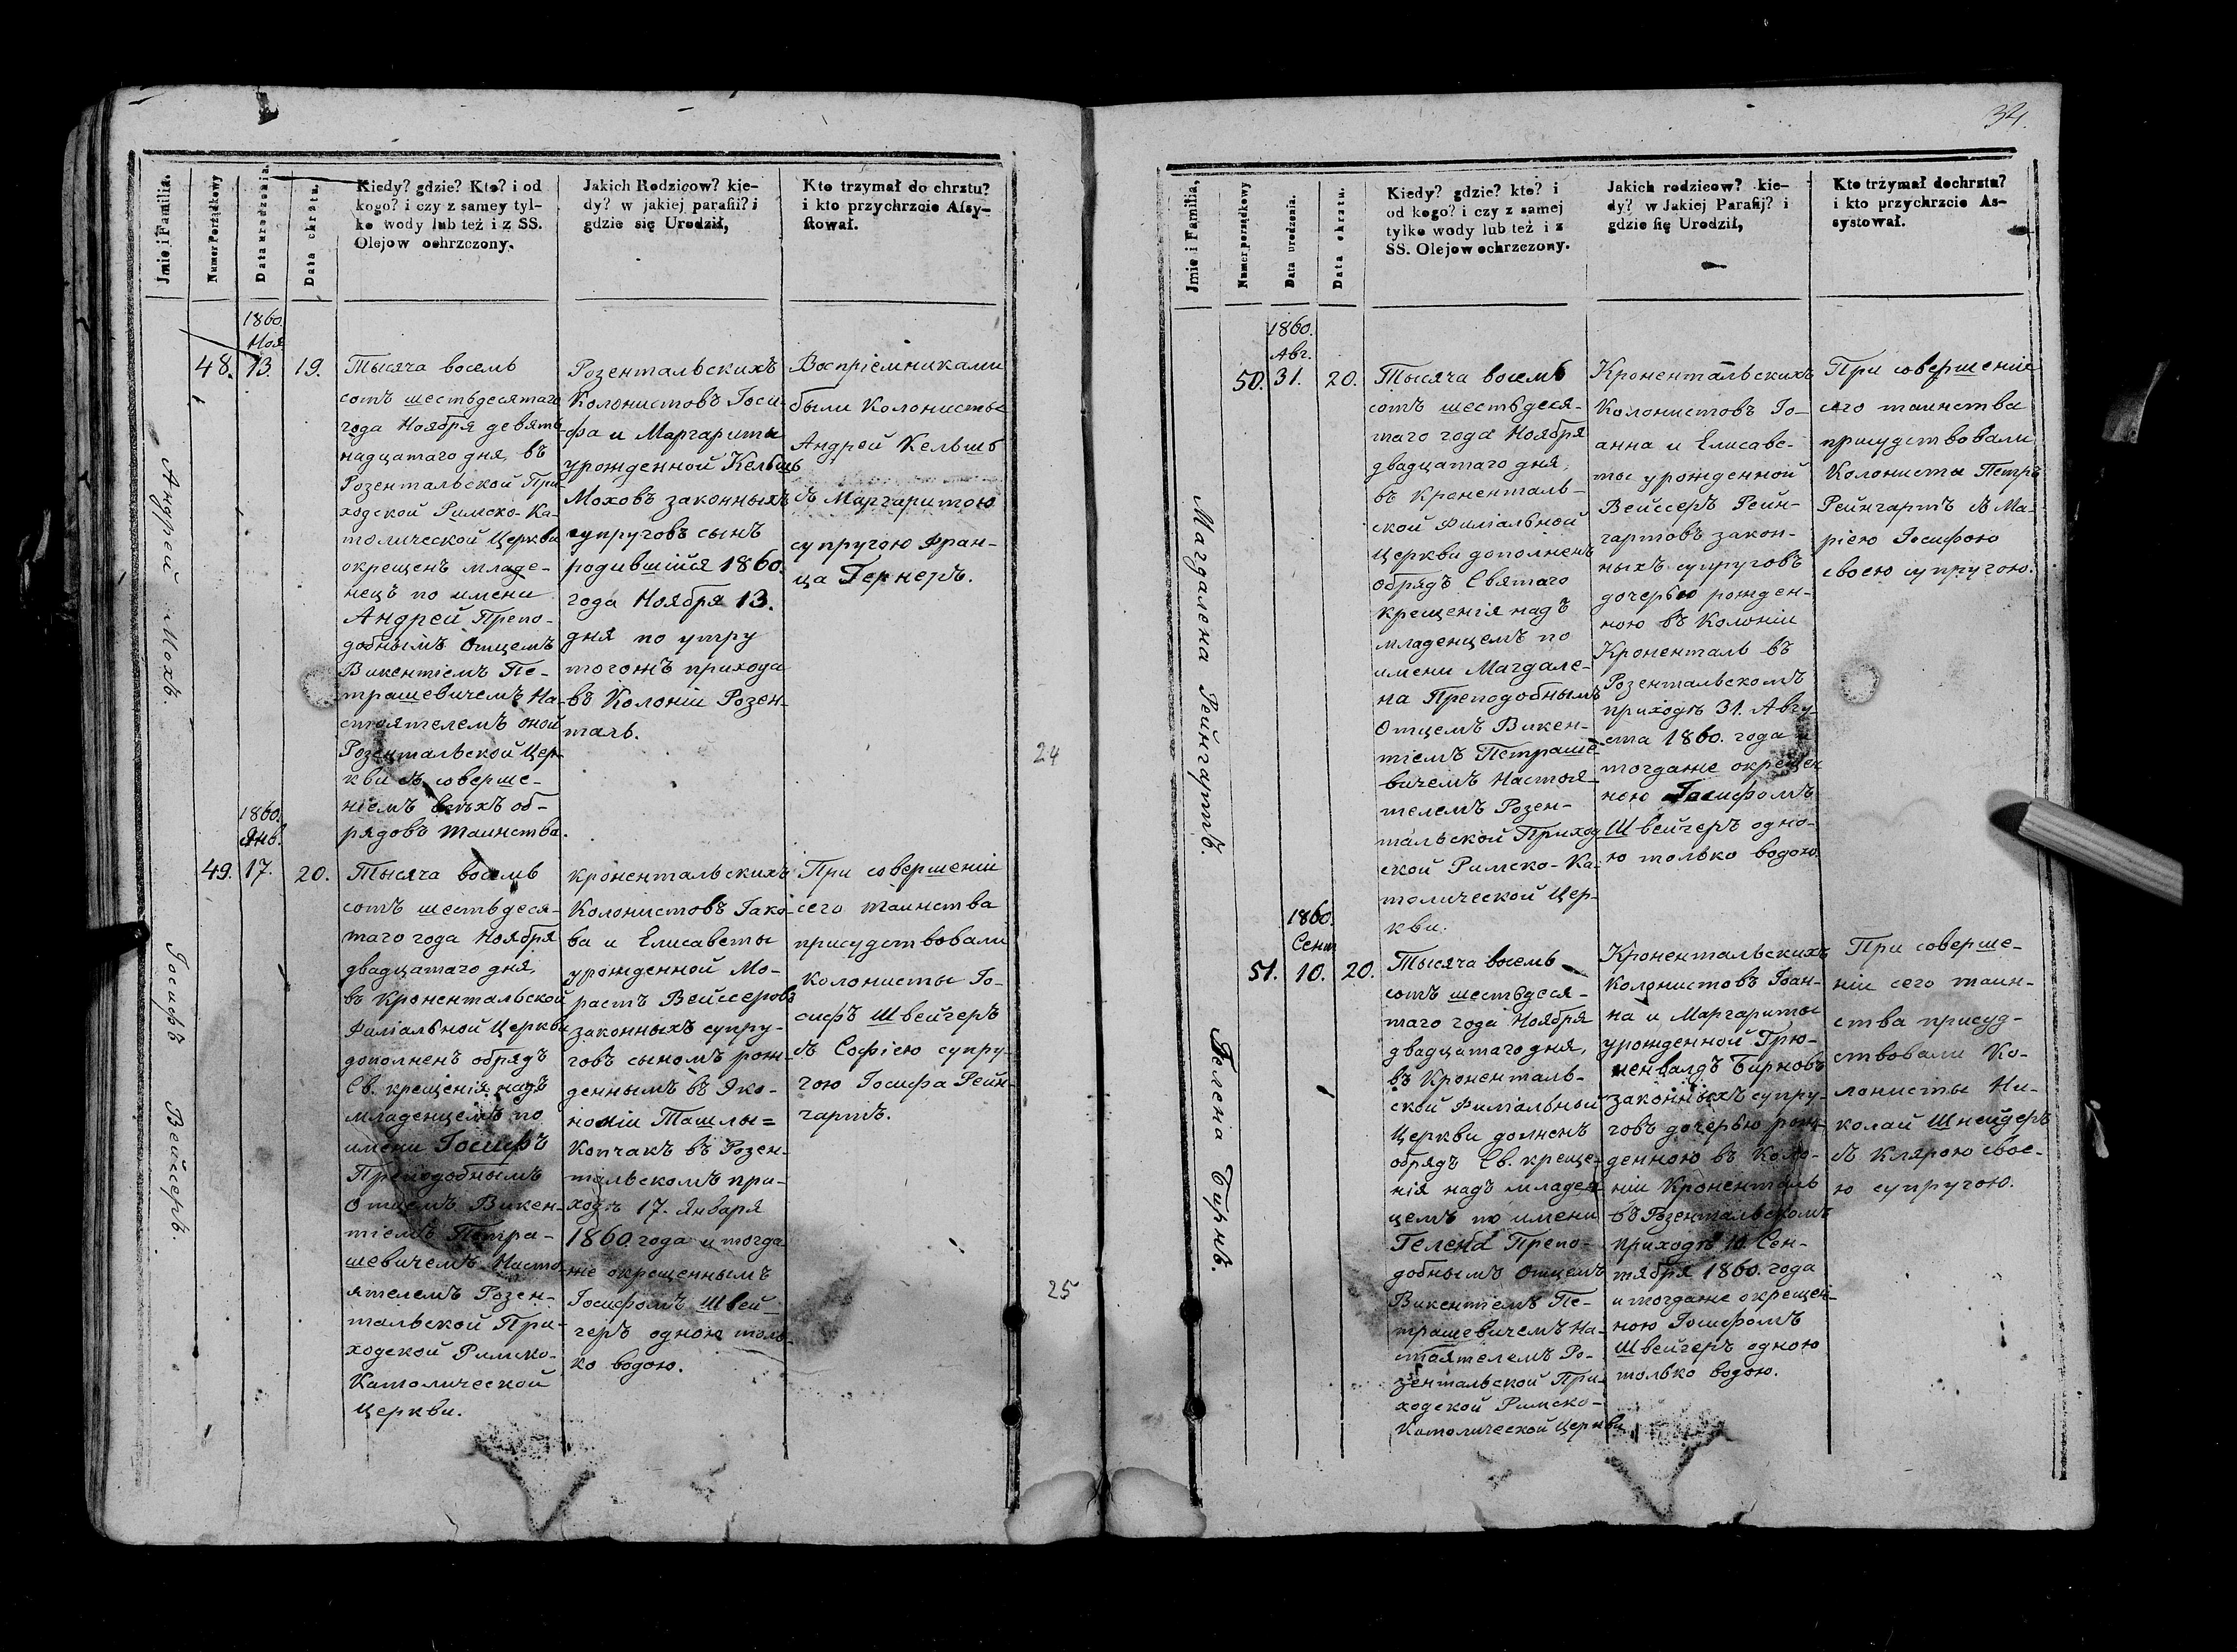 34.
Jmie i Familia.
Numer Porządkowy
Data urodzenia.
Data chrztu.
Kiedy? gdzie? Kto? i od
kogo? i czy z samey tyl-
ko wody lub też i z SS.
Olejow ochrzczony.
Jakich Rodzicow? kie-
dy? w jakiej parafii? i
gdzie się Urodził,
Kto trzymał do chrztu?
i kto przychrzcie Assy-
stował.
Андрей Мохъ.
48.
1860.
Ноя
13.
19.
Тысяча восемь
сотъ шестьдесятаго
года Ноября девять
надцатаго дня, въ
Розентальской При-
ходской Римско-Ка-
толической Церкви
окрещенъ младе-
нецъ по имени
Андрей Препо-
добнымъ Отцемъ
Викентіемъ Пе-
трашевичемъ На-
стоятелемъ оной
Розентальской Цер-
кви съ соверше-
ніемъ всѣхъ об-
рядовъ таинства.
Розентальскихъ
Колонистовъ Іоси-
фа и Маргариты
урожденной Кельшъ
Моховъ законныхъ
супруговъ сынъ
родившійся 1860.
года Ноября 13.
дня по утру
тогожъ прихода
въ Колоніи Розен-
таль.
Воспріемниками
были Колонисты
Андрей Кельшъ
съ Маргаритою
супругою Фран-
ца Гернеръ.
Іосифъ Вейссеръ.
49.
1860.
Янв.
17.
20.
Тысяча восемь
сотъ шестьдеся-
таго года Ноября
двадцатаго дня,
въ Кронентальской
Филіальной Церкви
дополненъ обрядъ
Св. крещенія надъ
младенцемъ по
имени Іосифъ
Преподобнымъ
Отцемъ Викен-
тіемъ Петра-
шевичемъ Насто-
ятелемъ Розен-
тальской При-
ходской Римско-
Католической
Церкви.
Кронентальскихъ
Колонистовъ Іако-
ва и Елисаветы
урожденной Мо-
растъ Вейссеровъ
законныхъ супру-
говъ сыномъ рож-
деннымъ въ Эко-
номіи Ташлы=
Копчакъ въ Розен-
тальскомъ при-
ходѣ 17. Января
1860 года и тогда
же окрещеннымъ
Іосифомъ Швей-
геръ одною толь-
ко водою.
При совершеніи
сего таинства
присудствовали
Колонисты Іо-
сифъ Швейгеръ
съ Софіею супру-
гою Іосифа Рейн-
гартъ.
24
25
Jmie i Familia,
Numer porządkowy
Data urodzenia.
Data chrztu.
Kiedy? gdzie? kto? i
od kogo? i czy z samej
tylko wody lub też i z
SS. Olejow ochrzczony.
Jakich rodzicow? kie-
dy? w Jakiej Parafij? i
gdzie się Urodził,
Kto trzymał dochrztu?
i kto przychrzcie As-
systował.
Магдалена Рейнгартъ.
50.
1860.
Авг.
31.
20.
Тысяча восемь
сотъ шестьдеся-
таго года Ноября
двадцатаго дня,
въ Кроненталь-
ской Филіальной
Церкви дополненъ
обрядъ Святаго
крещенія надъ
младенцемъ по
имени Магдале-
на Преподобнымъ
Отцемъ Викен-
тіемъ Петраше-
вичемъ Настоя-
телемъ Розен-
тальской Приход
ской Римско-Ка-
толической Цер-
кви.
Кронентальскихъ
Колонистовъ Іо-
анна и Елисаве-
ты урожденной
Вейссеръ Рейн-
гартовъ закон-
ныхъ супруговъ
дочерью рожден-
ною въ Колоніи
Кроненталь въ
Розентальскомъ
приходѣ 31. Авгу-
ста 1860. года и
тогдаже окрещен
ною Іосифомъ
Швейгеръ одно-
ю только водою.
При совершеніи
сего таинства
присудствовали
Колонисты Петръ
Рейнгартъ съ Ма-
ріею Іосифою
своею супругою.
Гелена Бирнъ.
51.
1860.
Сент
10.
20.
Тысяча восемь
сотъ шестьдеся-
таго года Ноября
двадцатаго дня,
въ Кроненталь-
ской Филіальной
Церкви долненъ
обрядъ Св. креще-
нія надъ младен-
цемъ по имени
Гелена Препо-
добнымъ Отцемъ
Викентіемъ Пе-
трашевичемъ На-
стоятелемъ Ро-
зентальской При-
ходской Римско-
Католической Церкви
Кронентальскихъ
Колонистовъ Іоан-
на и Маргариты
урожденной Грю-
ненвалдъ Бирновъ
законныхъ супру-
говъ дочерью рож-
денною въ Коло-
ніи Кроненталь
въ Розентальскомъ
приходѣ 10. Сен-
тября 1860. года
и тогдаже окрещен-
ною Іосифомъ
Швейгеръ одною
только водою.
При соверше-
ніи сего таин-
ства присуд-
ствовали Ко-
лонисты Ни-
колай Шнейдеръ
съ Клярою свое-
ю супругою.